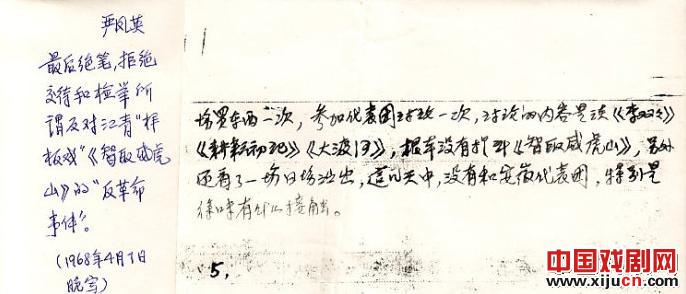 严凤英
最后绝笔,拒绝
交待和检举所
谓反对江青“样
板戏”《智取威虎
山》的“反革命
事件”。
(1968年4月7日
晚写)
场买东西二次,参加代表团讨论一次,讨论的内容是谈《李双双》
《耕耘初记》《大渡河》,根本没有提到《智取威虎山》,另外
还看了一场日场演出,这几天中,没有和安徽代表团,特别是
有什么接触。
5,
中国戏剧网
www.xijucn.com